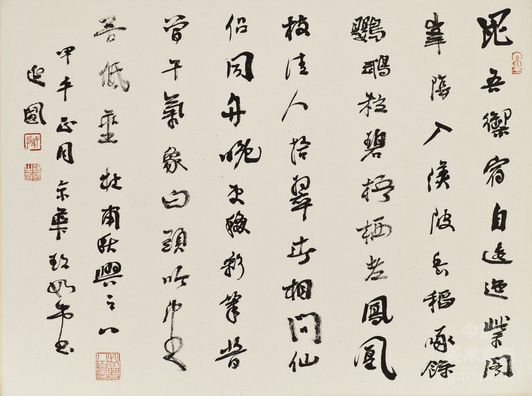 昆吾御宿自逶迤紫閣
峯陰入渼陂香稻啄餘
鸚鵡粒碧梧栖老鳳凰
枝佳人拾翠春相問仙
侶同舟晚更移彩筆昔
曾干氣象白頭吟望
苦低垂 杜甫秋興之八
甲午正月京華